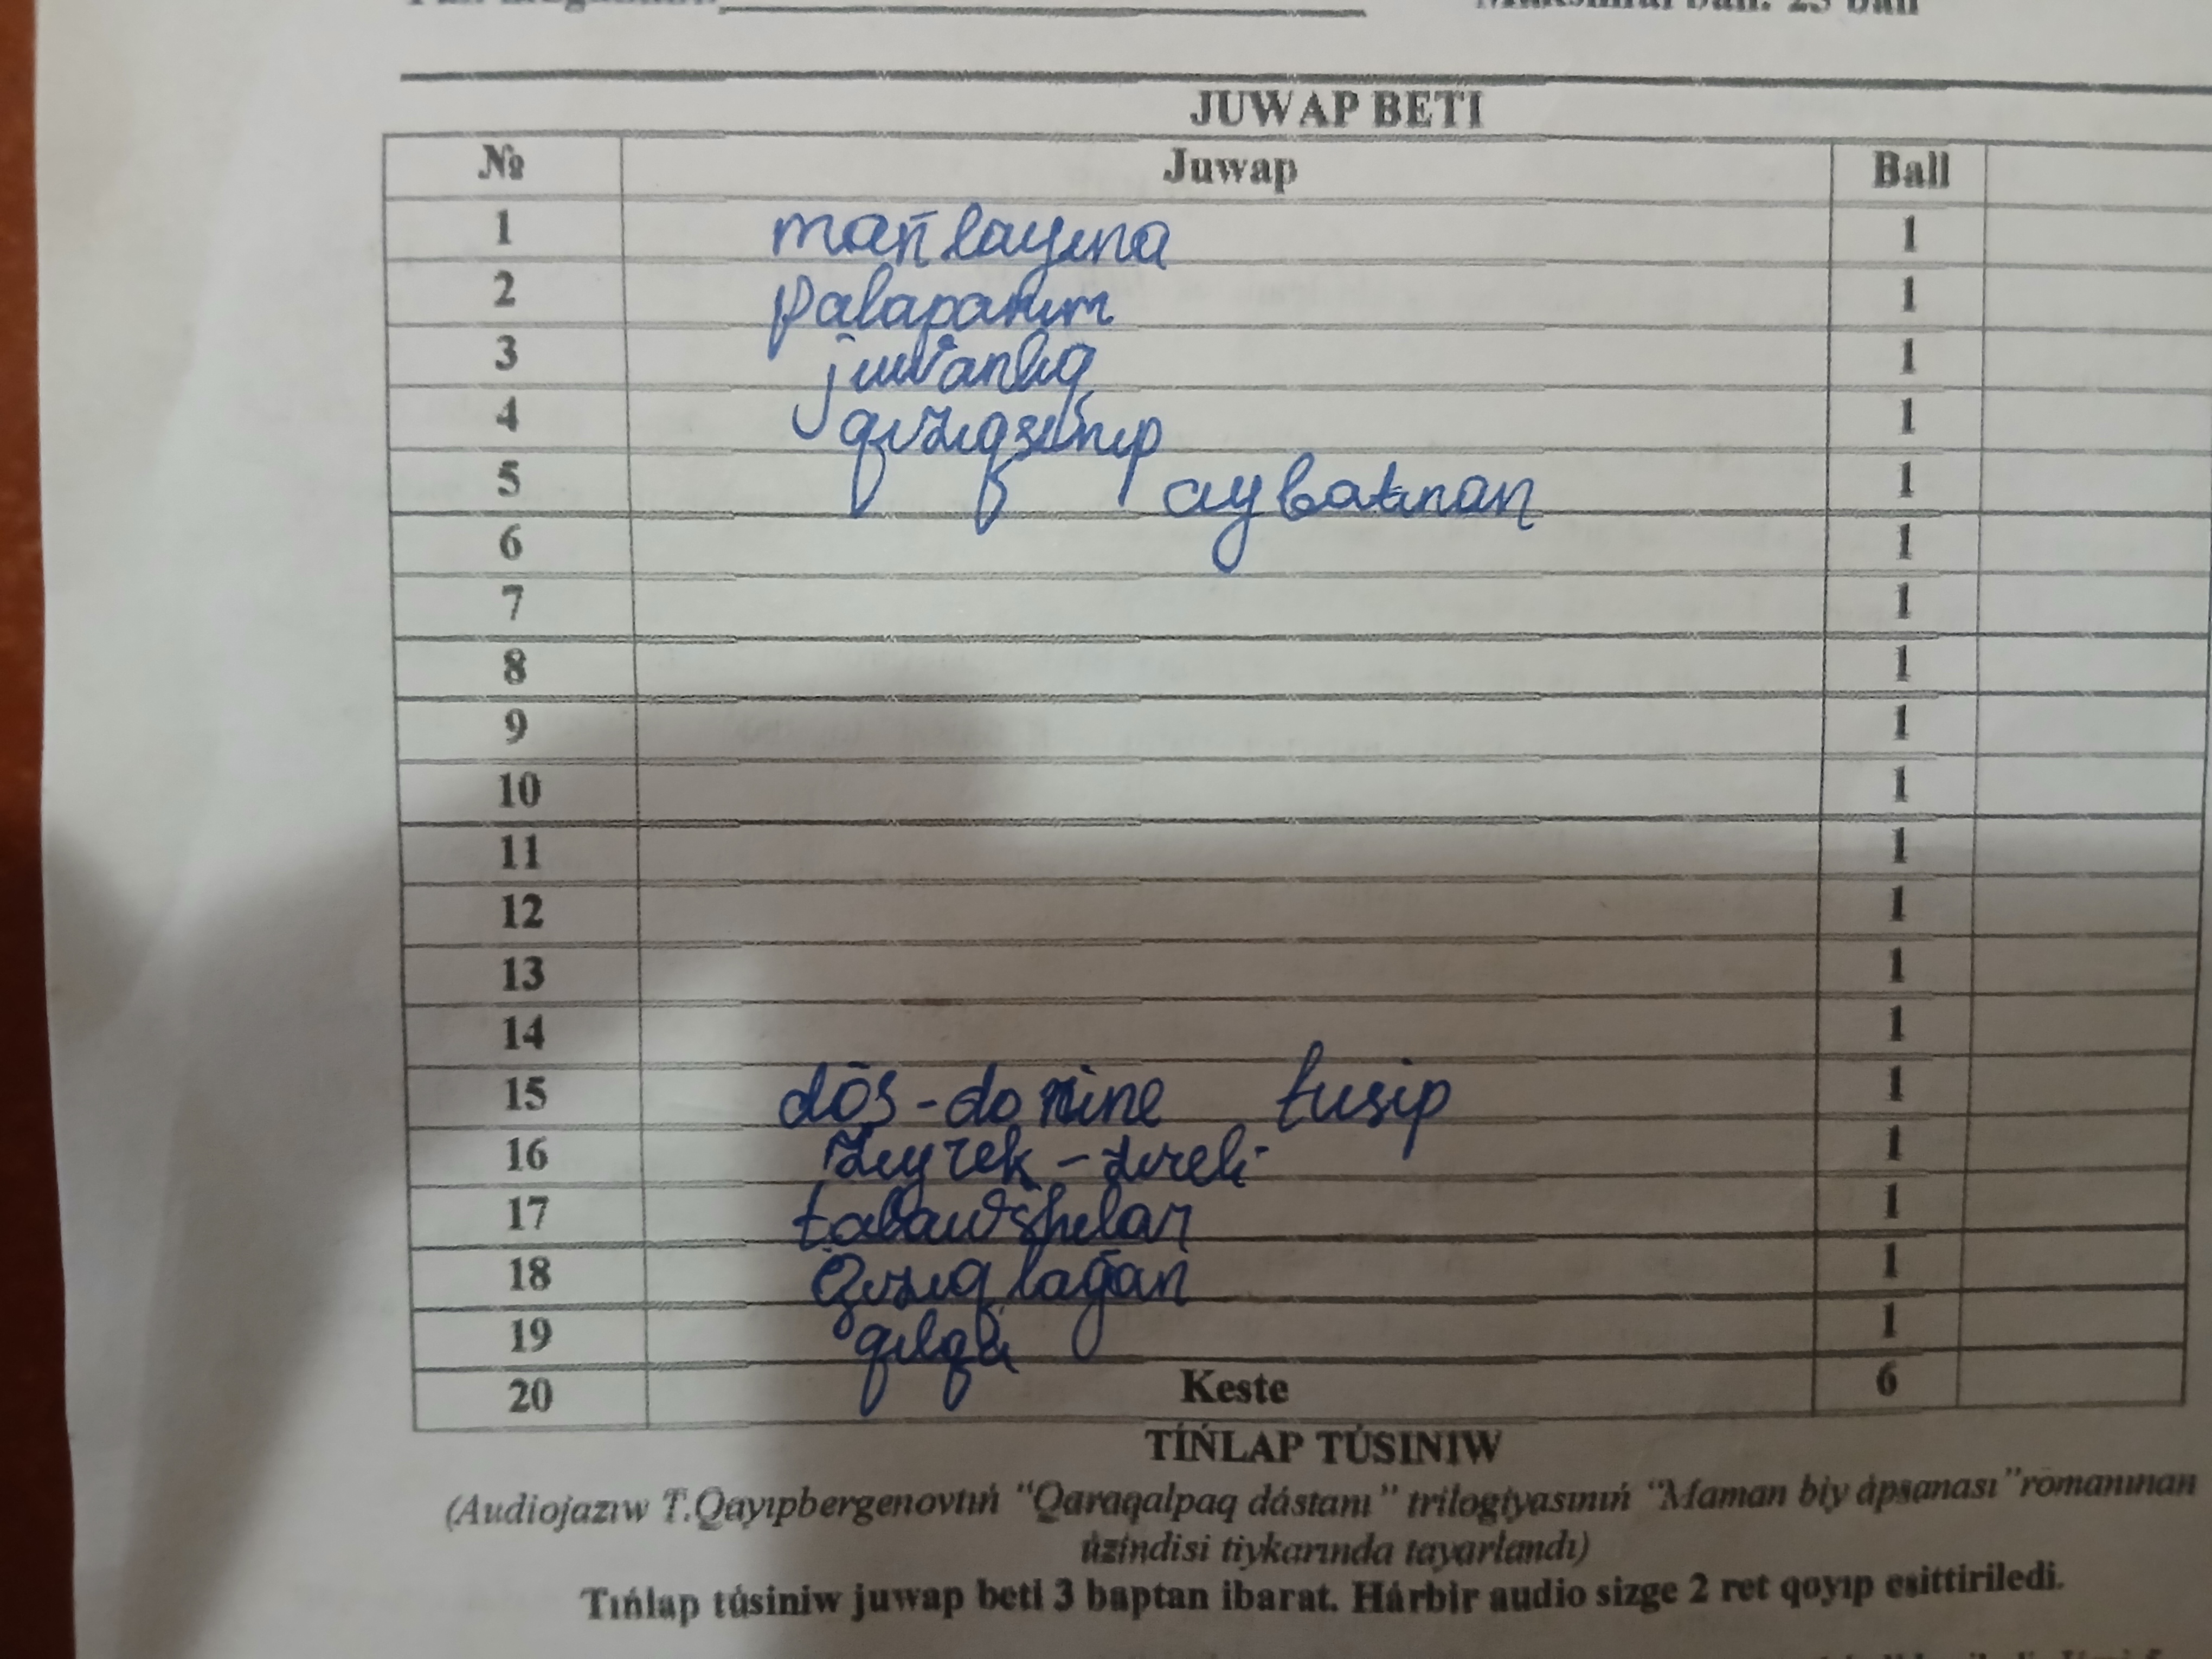 JUWAP BETI
№ Juwap Ball
1 mańlayına 1
2 Palapanım 1
3 Jubanba 1
4 qızıǵısıp 1
5 ay batınan 1
6 1
7 1
8 1
9 1
10 1
11 1
12 1
13 1
14 1
15 dós-domine túsip 1
16 Júyrek-túreli 1
17 tabawshılar 1
18 qızıqlaǵan 1
19 qılǵı 1
20 Keste 6
TÍŃLAP TÚSINIW
(Audiojazıw T.Qayıpbergenovtıń "Qaraqalpaq dástanı" trilogiyasınıń "Maman biy ápsanası" romanınan
úzindisi tiykarında tayarlandı)
Tıńlap túsiniw juwap beti 3 baptan ibarat. Hárbir audio sizge 2 ret qoyıp esittiriledi.